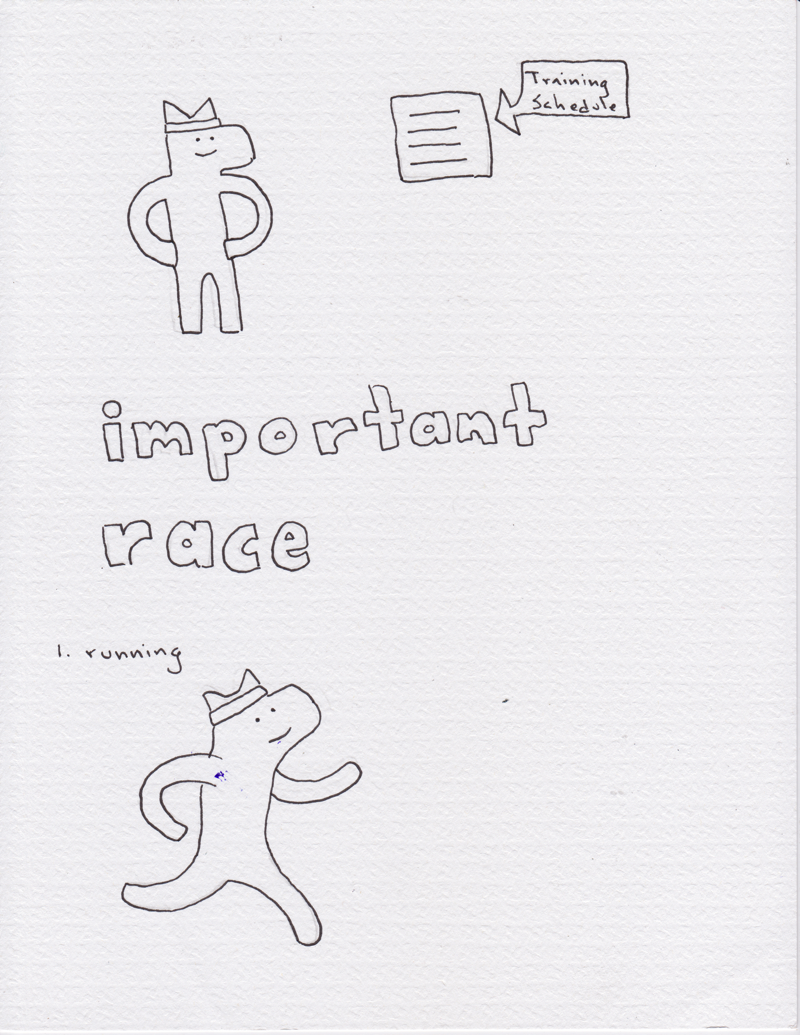 Training
Schedule
important
race
1. running